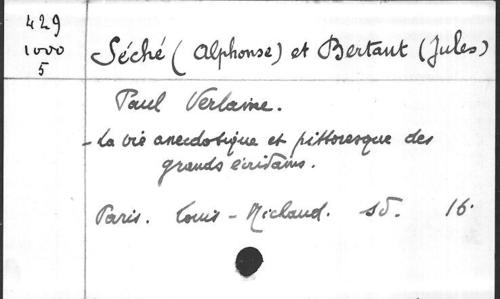 429
1000
5
Séché (Alphonse) et Bertaut (Jules)
Paul Verlaine.
- La vie anecdotique et pittoresque des
grands écrivains.
Paris. Louis-Michaud. sd. 16.